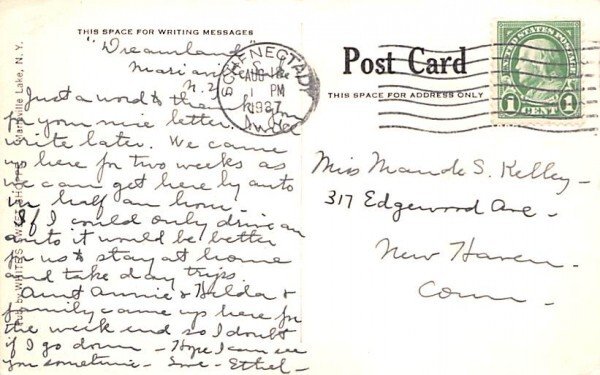 THIS SPACE FOR WRITING MESSAGES
"Dreamland"
Mariaville
N.Y.
Just a word to thank you
for your nice letter.
write later. We came
up here for two weeks as
we can get here by auto
in half an hour.
If I could only drive an
auto it would be better
for us to stay at home
and take day trips.
Aunt Annie & Hilda &
family came up here for
the week end so I doubt
if I go down - Hope I can see
you sometime - Love - Ethel -
Pub. by WHITE'S SWEET SHOPPE, Mariaville Lake, N. Y.
SCHENECTADY
AUG
1 PM
1927
Post Card
THIS SPACE FOR ADDRESS ONLY
UNITED STATES POSTAGE
1 CENT 1
Miss Maude S. Kelley -
317 Edgewood Ave -
New Haven -
Conn -